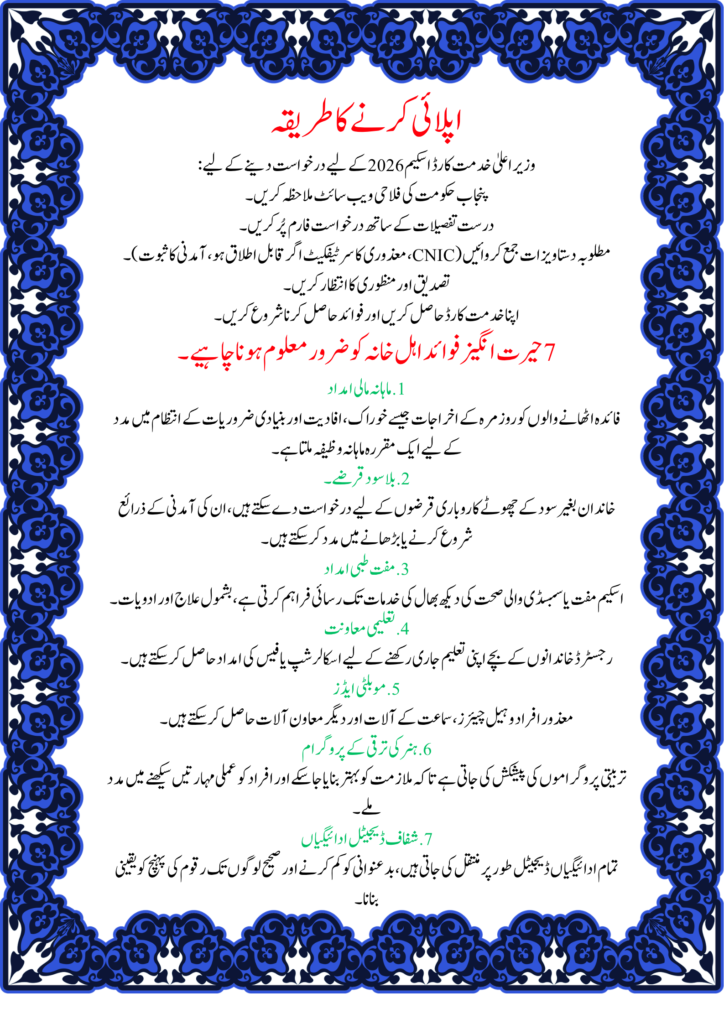 اپلائی کرنے کا طریقہ
وزیر اعلیٰ خدمت کارڈ اسکیم 2026 کے لیے درخواست دینے کے لیے:
پنجاب حکومت کی فلاحی ویب سائٹ ملاحظہ کریں۔
درست تفصیلات کے ساتھ درخواست فارم پُر کریں۔
مطلوبہ دستاویزات جمع کروائیں (CNIC، معذوری کا سرٹیفکیٹ اگر قابل اطلاق ہو، آمدنی کا ثبوت)۔
تصدیق اور منظوری کا انتظار کریں۔
اپنا خدمت کارڈ حاصل کریں اور فوائد حاصل کرنا شروع کریں۔
7 حیرت انگیز فوائد اہل خانہ کو ضرور معلوم ہونا چاہیے۔
1. ماہانہ مالی امداد
فائدہ اٹھانے والوں کو روزمرہ کے اخراجات جیسے خوراک، افادیت اور بنیادی ضروریات کے انتظام میں مدد
کے لیے ایک مقررہ ماہانہ وظیفہ ملتا ہے۔
2. بلا سود قرضے۔
خاندان بغیر سود کے چھوٹے کاروباری قرضوں کے لیے درخواست دے سکتے ہیں، ان کی آمدنی کے ذرائع
شروع کرنے یا بڑھانے میں مدد کر سکتے ہیں۔
3. مفت طبی امداد
اسکیم مفت یا سبسڈی والی صحت کی دیکھ بھال کی خدمات تک رسائی فراہم کرتی ہے، بشمول علاج اور ادویات۔
4. تعلیمی معاونت
رجسٹرڈ خاندانوں کے بچے اپنی تعلیم جاری رکھنے کے لیے اسکالرشپ یا فیس کی امداد حاصل کر سکتے ہیں۔
5. موبلٹی ایڈز
معذور افراد وہیل چیئرز، سماعت کے آلات اور دیگر معاون آلات حاصل کر سکتے ہیں۔
6. ہنر کی ترقی کے پروگرام
تربیتی پروگراموں کی پیشکش کی جاتی ہے تاکہ ملازمت کو بہتر بنایا جا سکے اور افراد کو عملی مہارتیں سیکھنے میں مدد
ملے۔
7. شفاف ڈیجیٹل ادائیگیاں
تمام ادائیگیاں ڈیجیٹل طور پر منتقل کی جاتی ہیں، بدعنوانی کو کم کرنے اور صحیح لوگوں تک رقوم کی پہنچ کو یقینی
بنانا۔